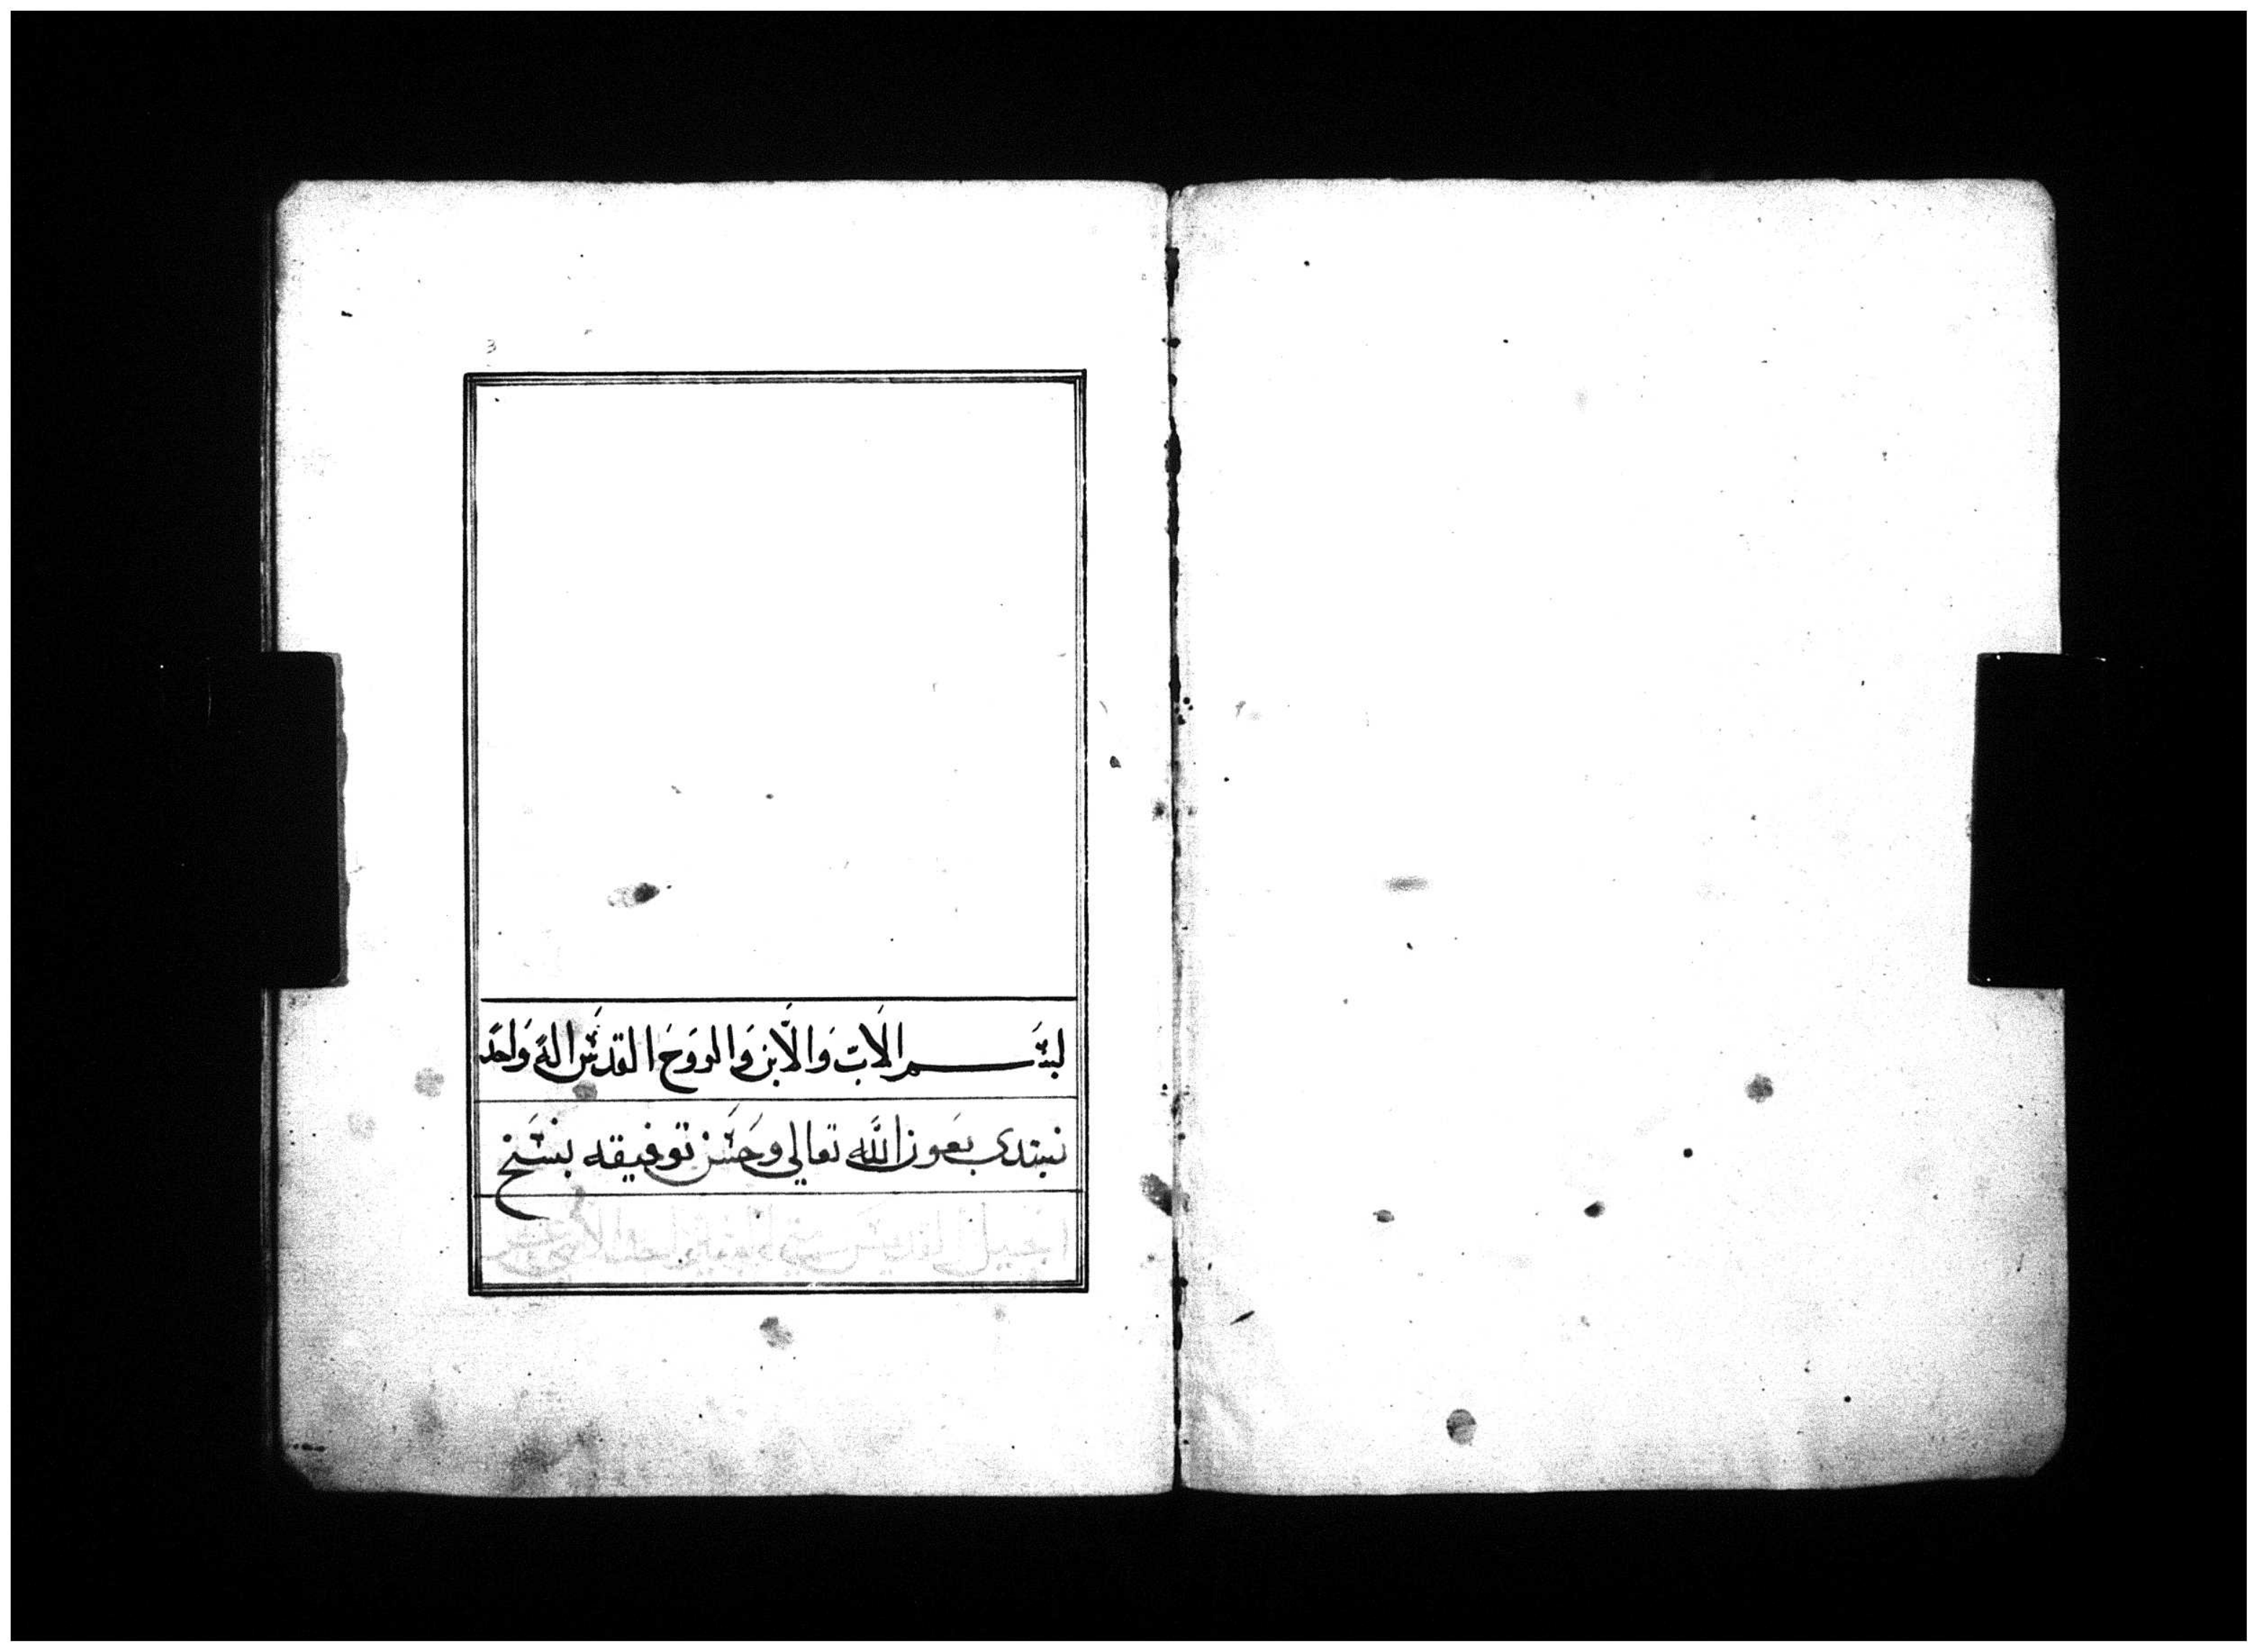 3
بسم الاب والابن والروح القدس اله واحد
نبتدى بعون الله تعالي وحسن توفيقه بنسخ
انجيل